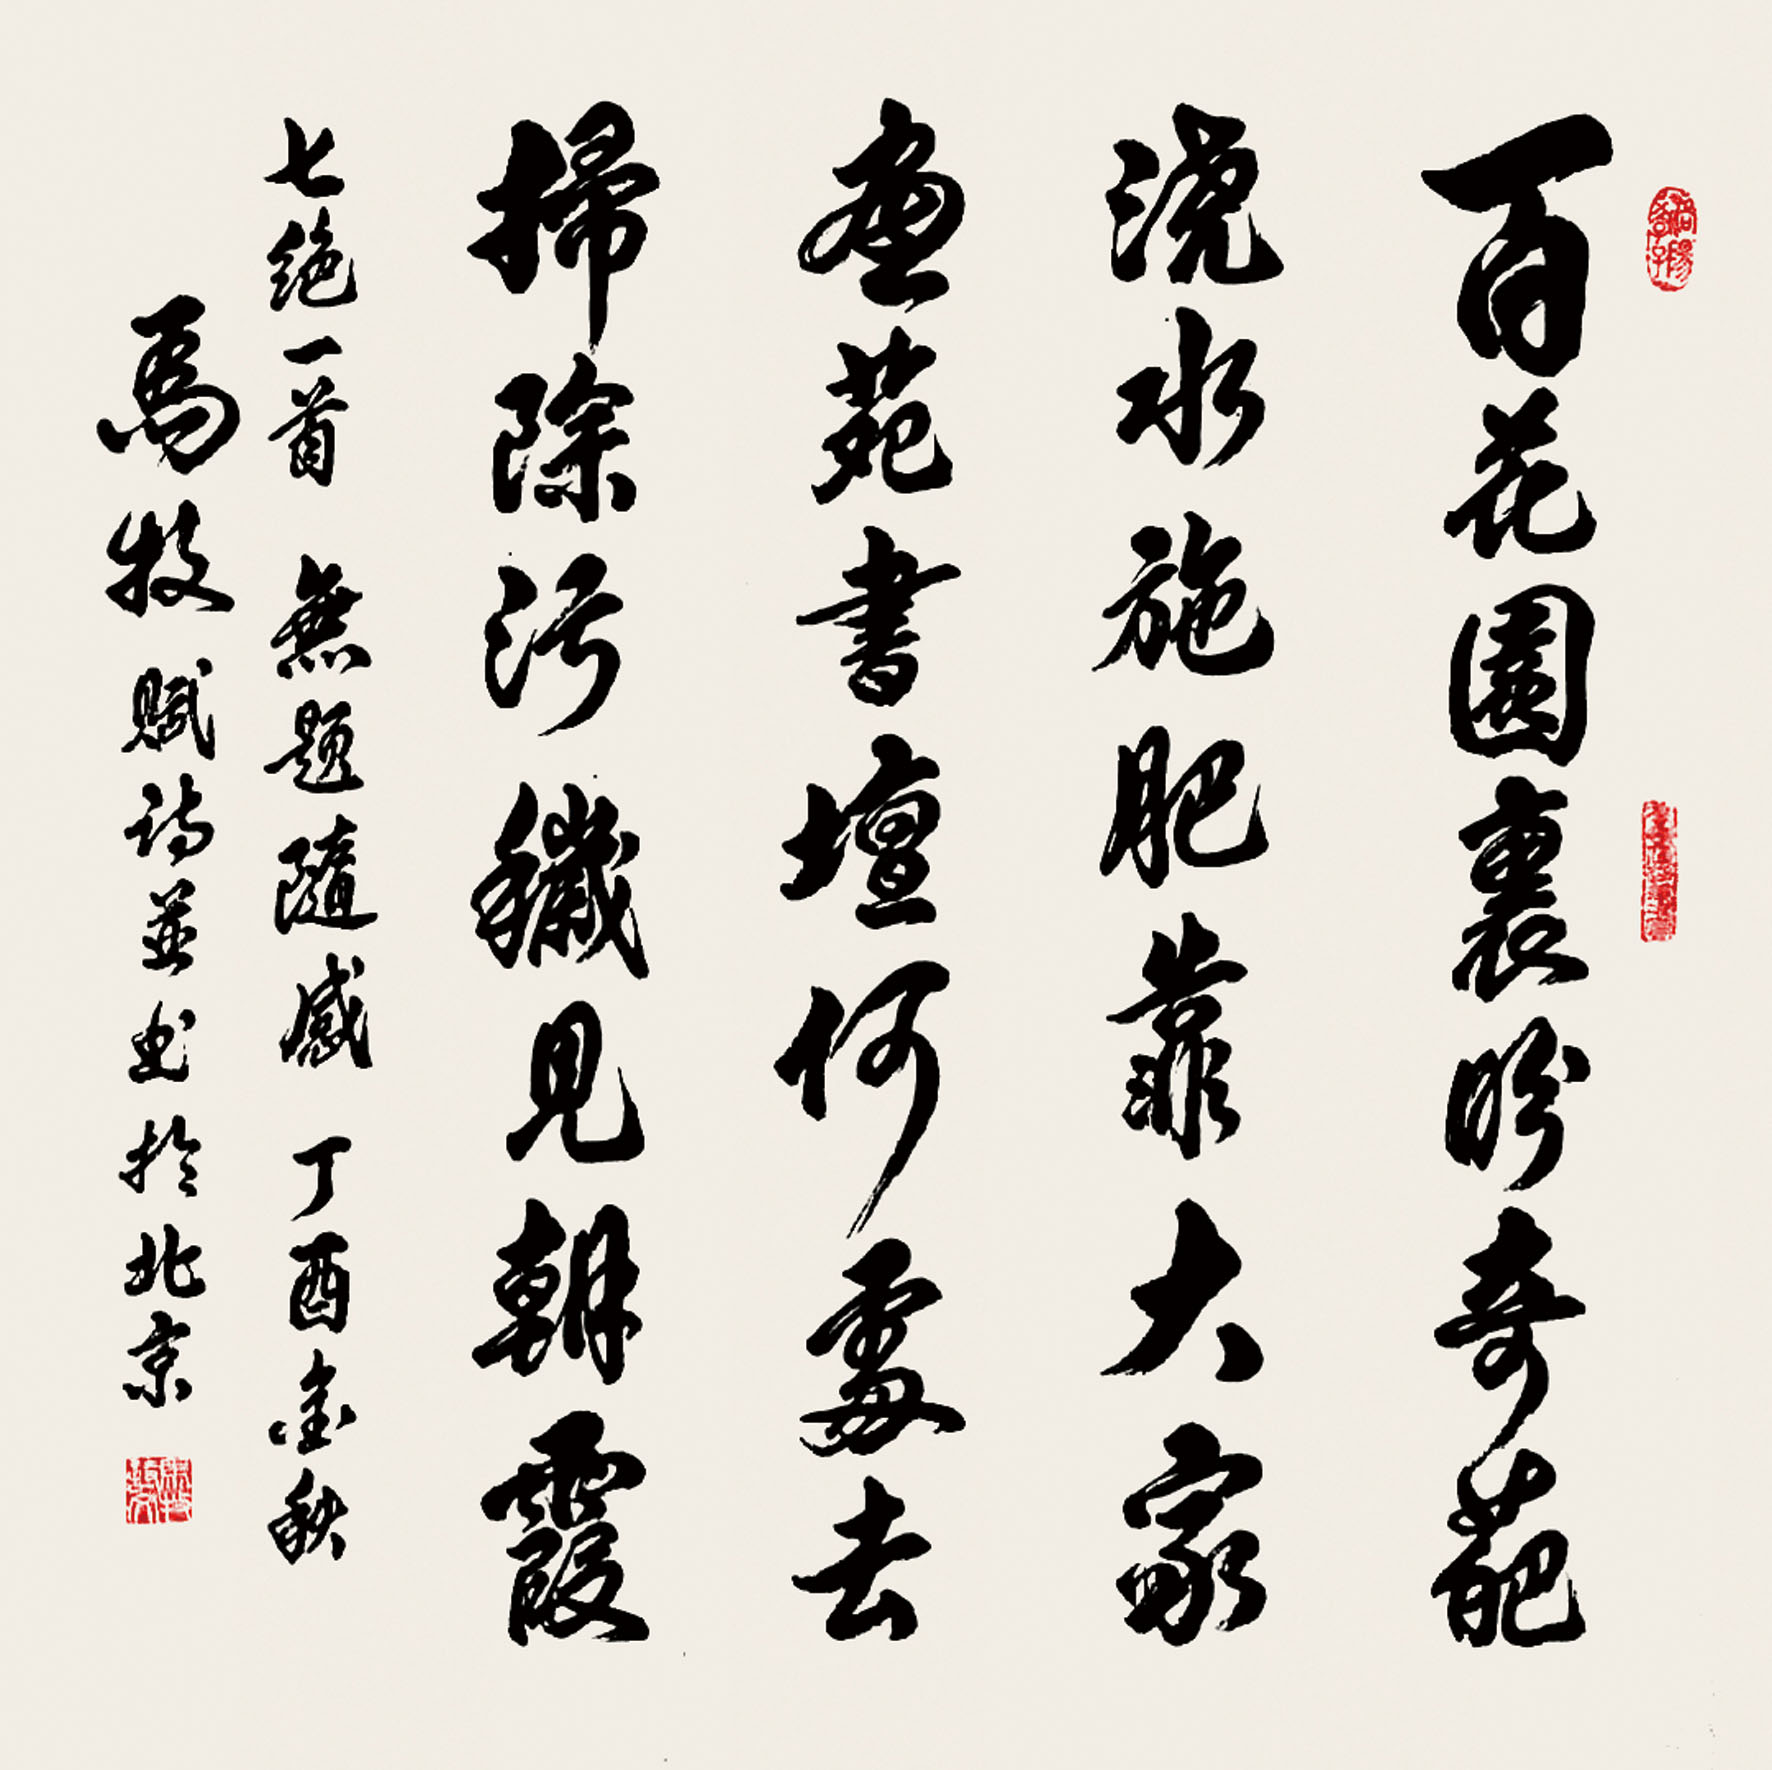 百花園裏盼奇葩
澆水施肥靠大家
畫苑書壇何處去
掃除污穢見朝霞
七絕一首 無題隨感 丁酉金秋
馬牧 賦詩並書於北京